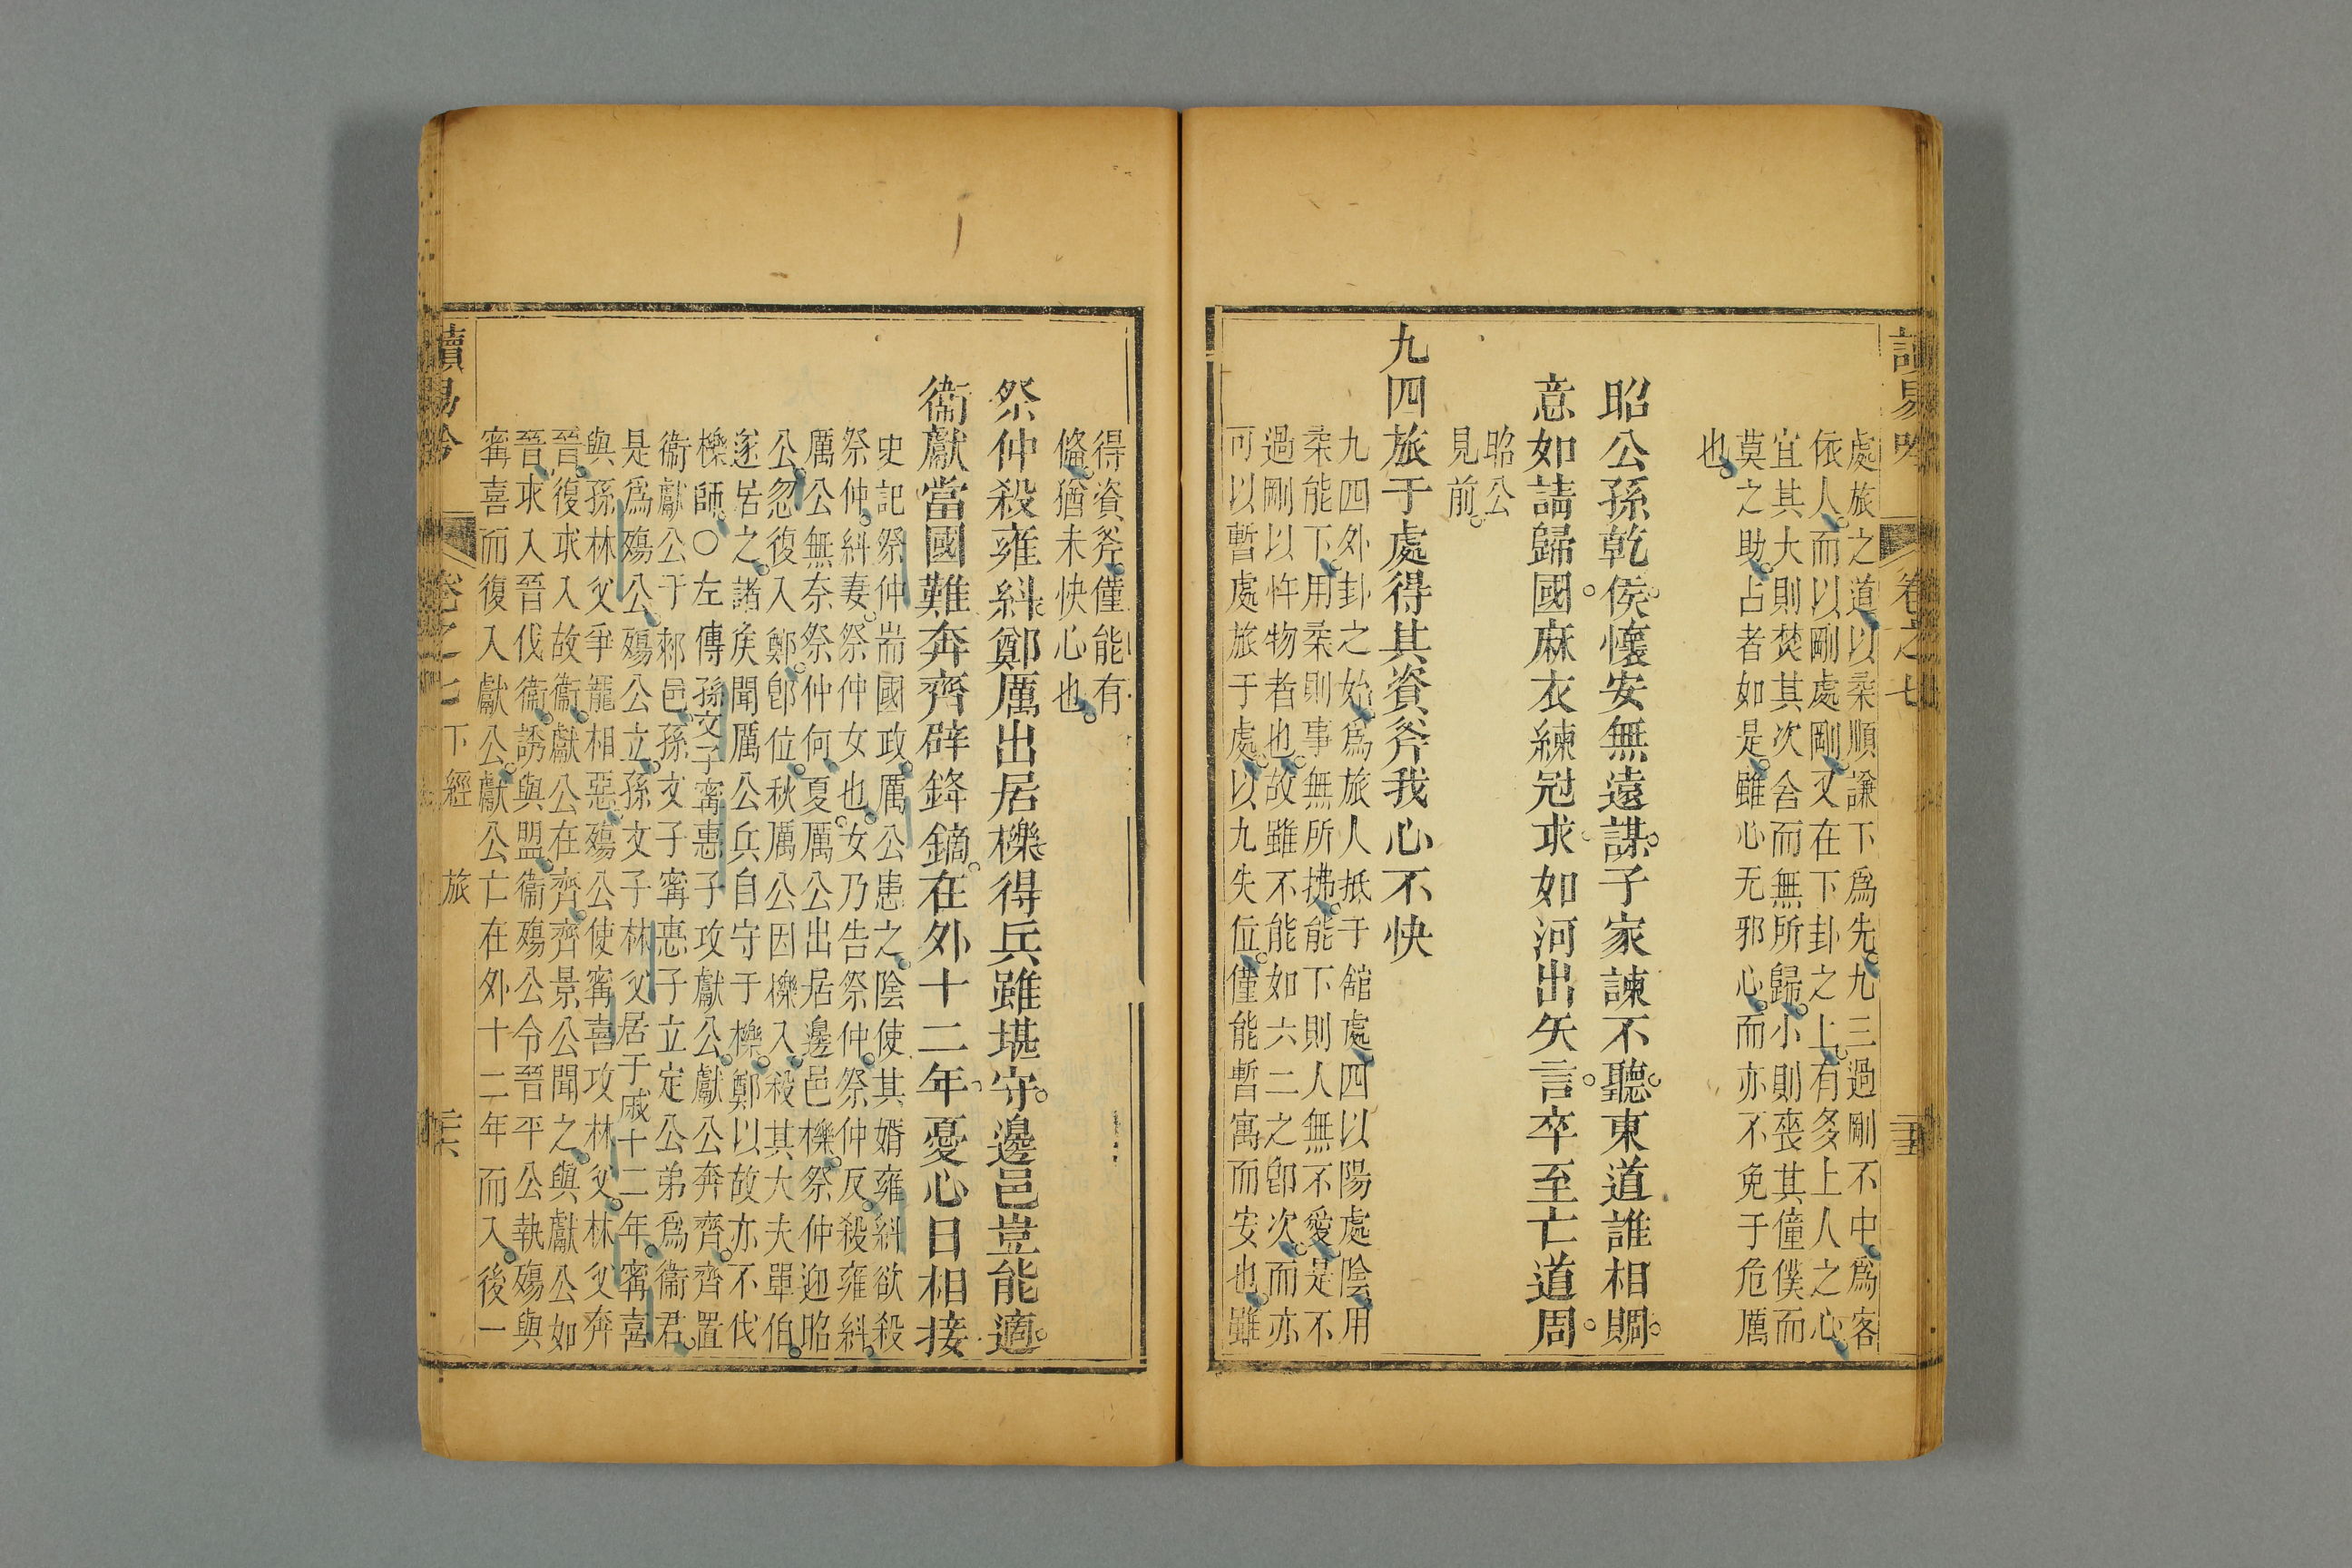 讀易吟 卷之七
處旅之道以柔順謙下爲先九三過剛不中爲客
依人而以剛處剛又在下卦之上有多上人之心
宜其大則焚其次舍而無所歸小則喪其僮僕而
莫之助占者如是雖心无邪心而亦不免于危厲
也
昭公孫乾侯懷安無遠謀子家諫不聽東道誰相賙
意如請歸國麻衣練冠求如河出矢言卒至亡道周
昭公
見前
九四旅于處得其資斧我心不快
九四外卦之始爲旅人抵于舘處四以陽處陰用
柔能下用柔則事無所拂能下則人無不愛是不
過剛以忤物者也故雖不能如六二之卽次而亦
可以暫處旅于處以九失位僅能暫寓而安也雖
得資斧僅能有
偹猶未快心也
祭仲殺雍糾鄭厲出居櫟得兵雖堪守邊邑豈能適
衞獻當國難奔齊辟鋒鏑在外十二年憂心日相接
史記祭仲耑國政厲公患之陰使其婿雍糾欲殺
祭仲糾妻祭仲女也女乃告祭仲祭仲反殺雍糾
厲公無奈祭仲何夏厲公出居邊邑櫟祭仲迎昭
公忽復入鄭卽位秋厲公因櫟入殺其大夫單伯
遂居之諸矦聞厲公兵自守于櫟鄭以故亦不伐
櫟師〇左傳孫文子甯惠子攻獻公獻公奔齊齊置
衞獻公于郲邑孫文子甯惠子立定公弟爲衞君
是爲殤公殤公立孫文子林父居于戚十二年甯喜
與孫林父爭寵相惡殤公使甯喜攻林父林父奔
晉復求入故衞獻公在齊齊景公聞之與獻公如
晉求入晉伐衞誘與盟衞殤公令晉平公執殤與
甯喜而復入獻公獻公亡在外十二年而入後一
讀易吟 卷之七 下經 旅